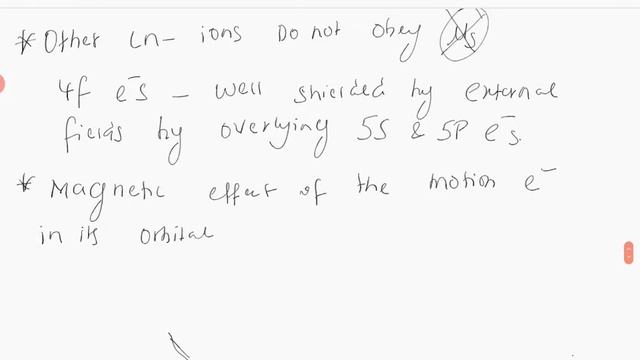 * Other Ln- ions Do not obey μs
4f e⁻s - well shielded by external
fields by overlying 5S & 5P e⁻s.
* Magnetic effect of the motion e⁻
in its orbital